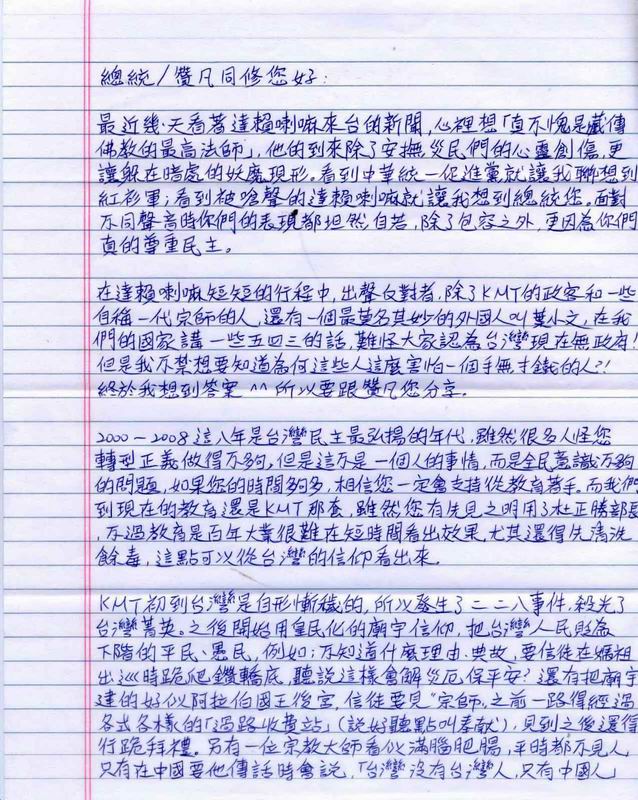 總統/贊凡同修您好:
最近幾天看著達賴喇嘛來台的新聞,心裡想「真不愧是藏傳
佛教的最高法師」,他的到來除了安撫災民們的心靈創傷,更
讓躲在暗處的妖魔現形。看到中華統一促進黨就讓我聯想到
紅衫軍;看到被嗆聲的達賴喇嘛就讓我想到總統您。面對
不同聲音時你們的表現都坦然自若,除了包容之外,更因為你們
真的尊重民主。
在達賴喇嘛短短的行程中,出聲反對者,除了KMT的政客和一些
自稱一代宗師的人,還有一個最莫名其妙的外國人叫葉小文,在我
們的國家講一些五四三的話,難怪大家認為台灣現在無政府!
但是我不禁想要知道為何這些人這麼害怕一個手無寸鐵的人?!
終於我想到答案^^所以要跟贊凡您分享。
2000-2008這八年是台灣民主最弘揚的年代,雖然很多人怪您
轉型正義做得不夠,但是這不是一個人的事情,而是全民意識不夠
的問題,如果您的時間夠多,相信您一定會支持從教育著手。而我們
到現在的教育還是KMT那套,雖然您有先見之明用了杜正勝部長
,不過教育是百年大業很難在短時間看出效果,尤其還得先清洗
餘毒,這點可以從台灣的信仰看出來。
KMT初到台灣是自形慚穢的,所以發生了二二八事件,殺光了
台灣菁英。之後開始用皇民化的廟宇信仰,把台灣人民貶為
下階的平民、愚民,例如;不知道什麼理由、典故,要信徒在媽祖
出巡時跪爬鑽轎底,聽說這樣會解災厄、保平安?還有把廟宇
建的好似阿拉伯國王後宮,信徒要見"宗師"之前一路得經過
各式各樣的「過路收費站」(說好聽點叫奉獻),見到之後還得
行跪拜禮。另有一位宗教大師看似滿腦肥腸,平時都不見人,
只有在中國要他傳話時會說,「台灣沒有台灣人,只有中國人」